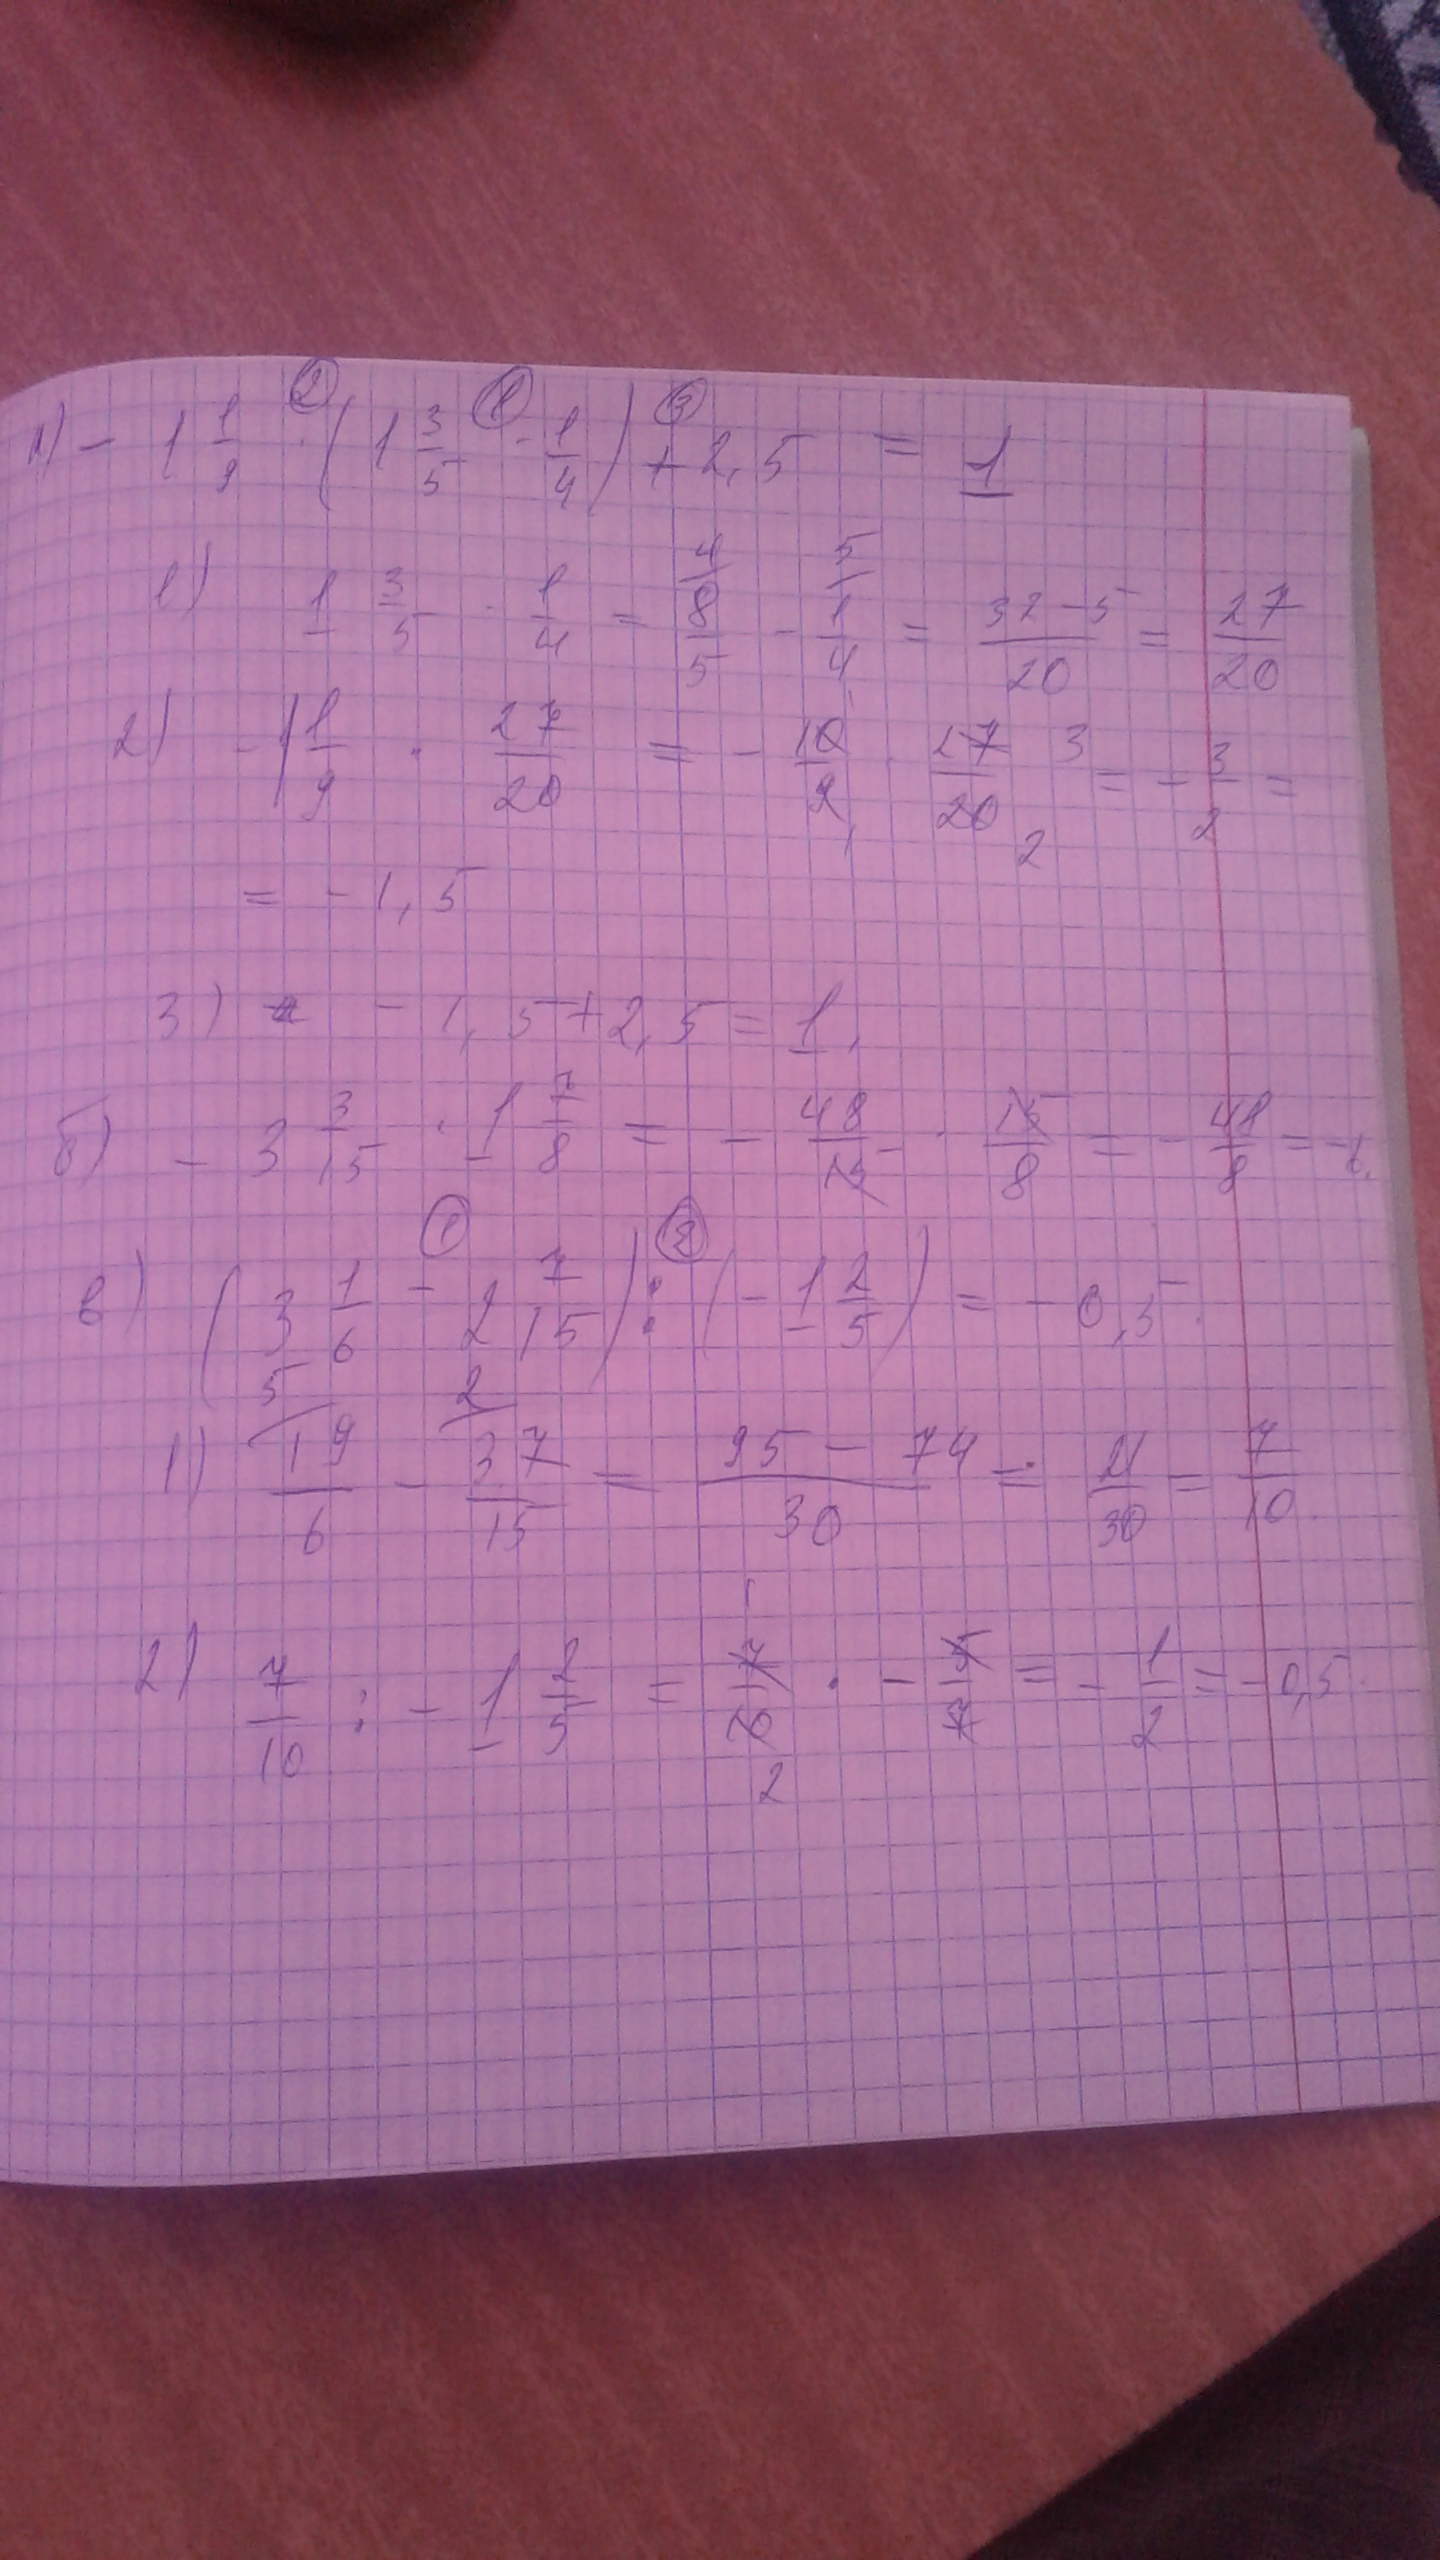 а) - 1 1/9 · (1 3/5 - 1/4) + 2,5 = 1
1) 1 3/5 - 1/4 = 8/5 - 1/4 = 32-5/20 = 27/20
2) - 1 1/9 · 27/20 = - 10/9 · 27/20 = - 3/2 =
= - 1,5
3) - 1,5 + 2,5 = 1.
б) - 3 3/15 · 1 7/8 = - 48/15 · 15/8 = - 48/8 = -6.
в) (3 1/6 - 2 7/15) : (- 1 2/5) = - 0,5.
1) 19/6 - 37/15 = 95 - 74/30 = 21/30 = 7/10.
2) 7/10 : - 1 2/5 = 7/10 · - 5/7 = - 1/2 = - 0,5.